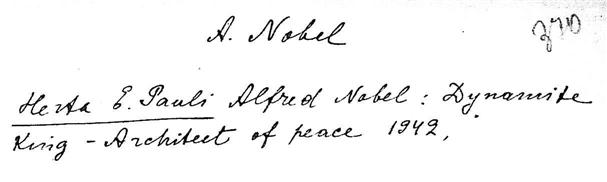 A. Nobel
370
Herta E. Pauli Alfred Nobel : Dynamite
King - Architect of peace 1942,